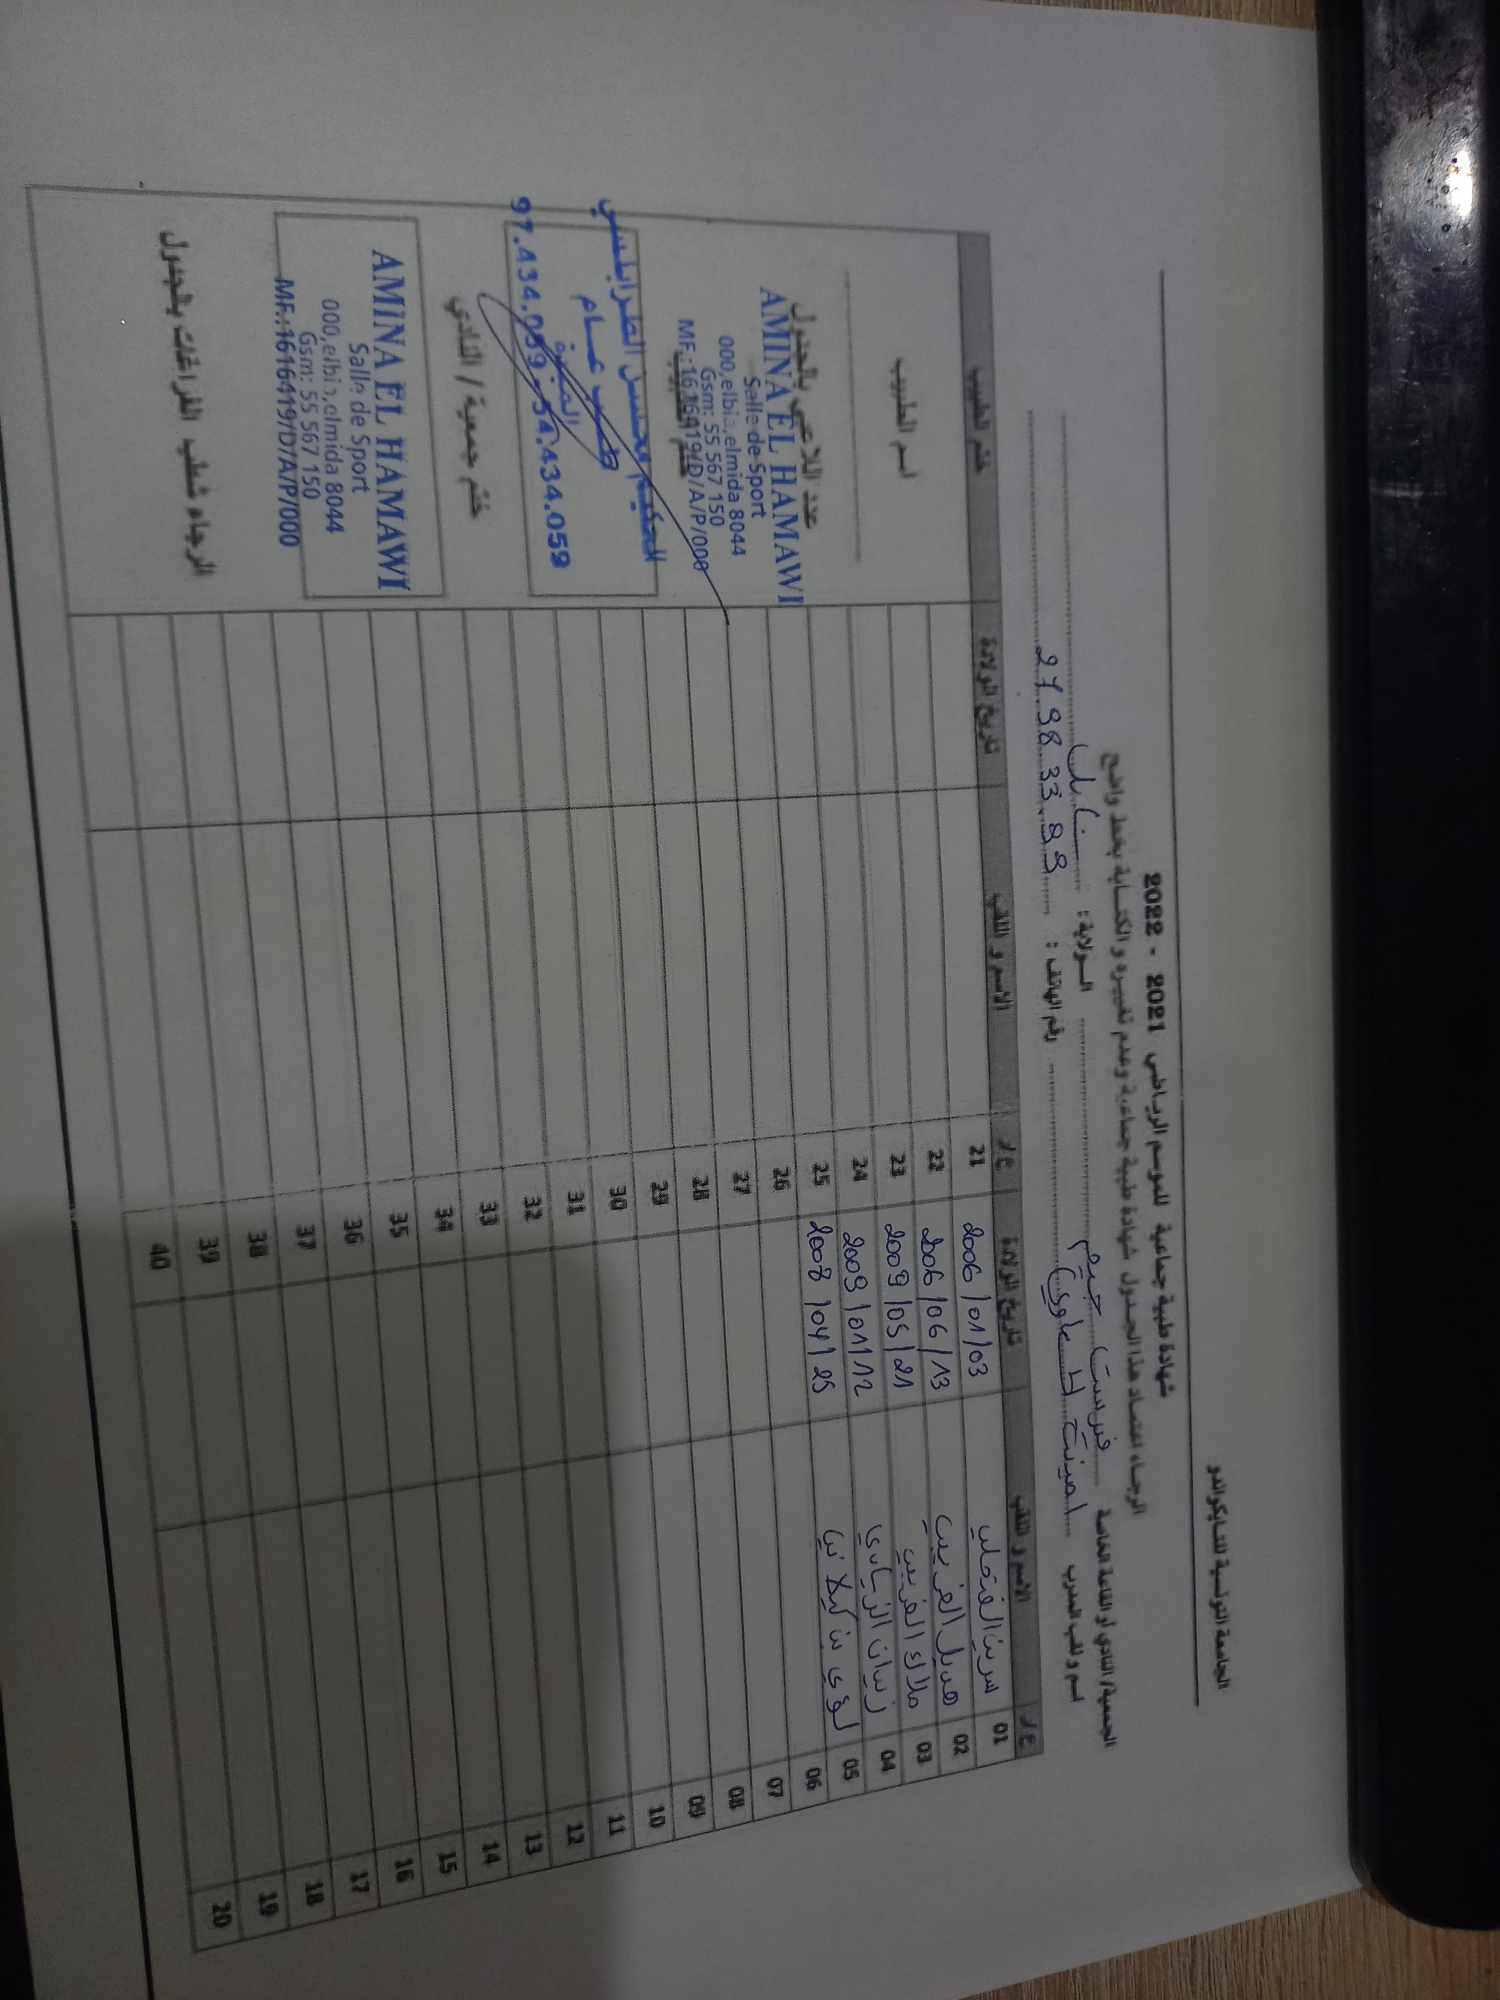 الجامعة التونسية للتايكواندو
شهادة طبية جماعية للموسم الرياضي 2021 - 2022
الرجاء اعتماد هذا الجدول شهادة طبية جماعية وعدم تغييره و الكتابة بخط واضح
الجمعية/ النادي أو القاعة الخاصة فيرست جيم الولاية : نابل
اسم و لقب المدرب امينة الحماوي رقم الهاتف : 27.98.33.99
ع/ر الاسم و اللقب تاريخ الولادة ع/ر الاسم و اللقب تاريخ الولادة ختم الطبيب
01 سرين الفتحلي 2006/01/03 21
02 هديل الغريبي 2006/06/13 22
03 ملاك الغريبي 2009/05/21 23
04 زينات الزيادي 2009/01/12 24
05 لؤي بن كيلاني 2008/04/25 25
06 26
07 27
08 28
09 29
10 30
11 31
12 32
13 33
14 34
15 35
16 36
17 37
18 38
19 39
20 40
اسم الطبيب
عدد اللاعبي بالجدول
AMINA EL HAMAWI
Salle de Sport
000,elbi,elmida 8044
Gsm: 55 567 150
MF.:1616419/D/A/P/000
الحكيم محسن الطرابلسي
طبيب عام
الميدة
97.434.059-54.434.059
ختم جمعية / النادي
AMINA EL HAMAWI
Salle de Sport
000,elbi,elmida 8044
Gsm: 55 567 150
MF.:1616419/D/A/P/000
الرجاء شطب الفراغات بالجدول